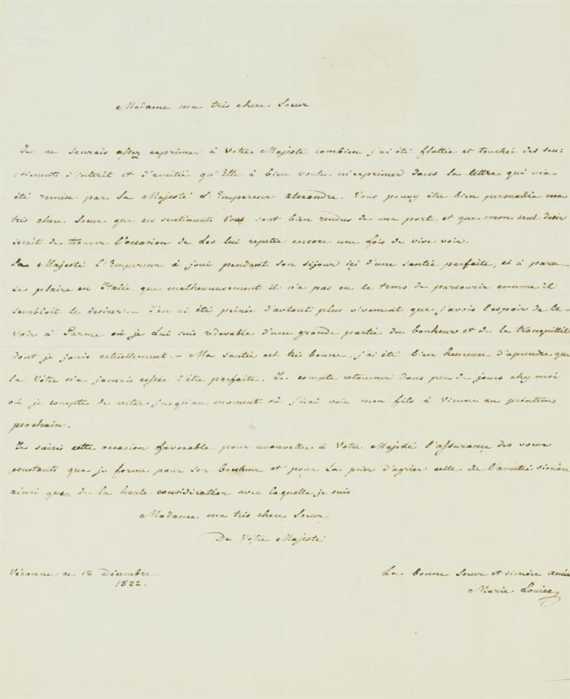 Madame ma très chere Soeur
Je ne saurais assez exprimer à Votre Majesté combien j'ai été flattée et touchée des sen-
timents d'interêt et d'amitié qu'Elle à bien voulu m'exprimer dans la lettre qui m'a
été remise par Sa Majesté l'Empereur alexandre. Vous pouvez être bien persuadée ma
très chere Soeur que ces sentiments Vous sont bien rendus de ma part et que mon seul desir
serait de trouver l'occasion de les lui repeter encore une fois de vive voix.
Sa Majesté l'Empereur à joui pendant son séjour içi d'une santée parfaite, et à paru
se plaire en Italie que malheureusement il n'a pas eu le tems de parcourir comme il
semblait le desirer. J'en ai été peinée d'autant plus vivement que j'avois l'espoir de le
voir à Parme où je Lui suis redevable d'une grande partie du bonheur et de la tranquillité
dont je jouis actuellement. - Ma santée est très bonne, j'ai été bien heureuse d'aprendre que
la Vôtre n'a jamais cessée d'être parfaite. Je compte retourner dans peu de jours chez moi
où je compte de rester jusqu'au moment où j'irai voir mon fils à Vienne au printems
prochain.
Je saisis cette occasion favorable pour renouveller à Votre Majesté l'assurance des voeux
constants que je forme pour Son bonheur et pour La prier d'agréer celle de l'amitié sincère
ainsi que de la haute considération avec laquelle je suis
Madame ma très chere Soeur
De Votre Majesté
Véronne ce 12 Décembre
1822.
La bonne Soeur et sincère amie
Marie Louise